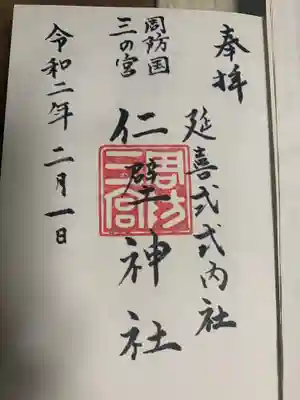 奉拝
延喜式式内社
仁壁神社
周防国
三の宮
令和二年二月一日
周防
三宮